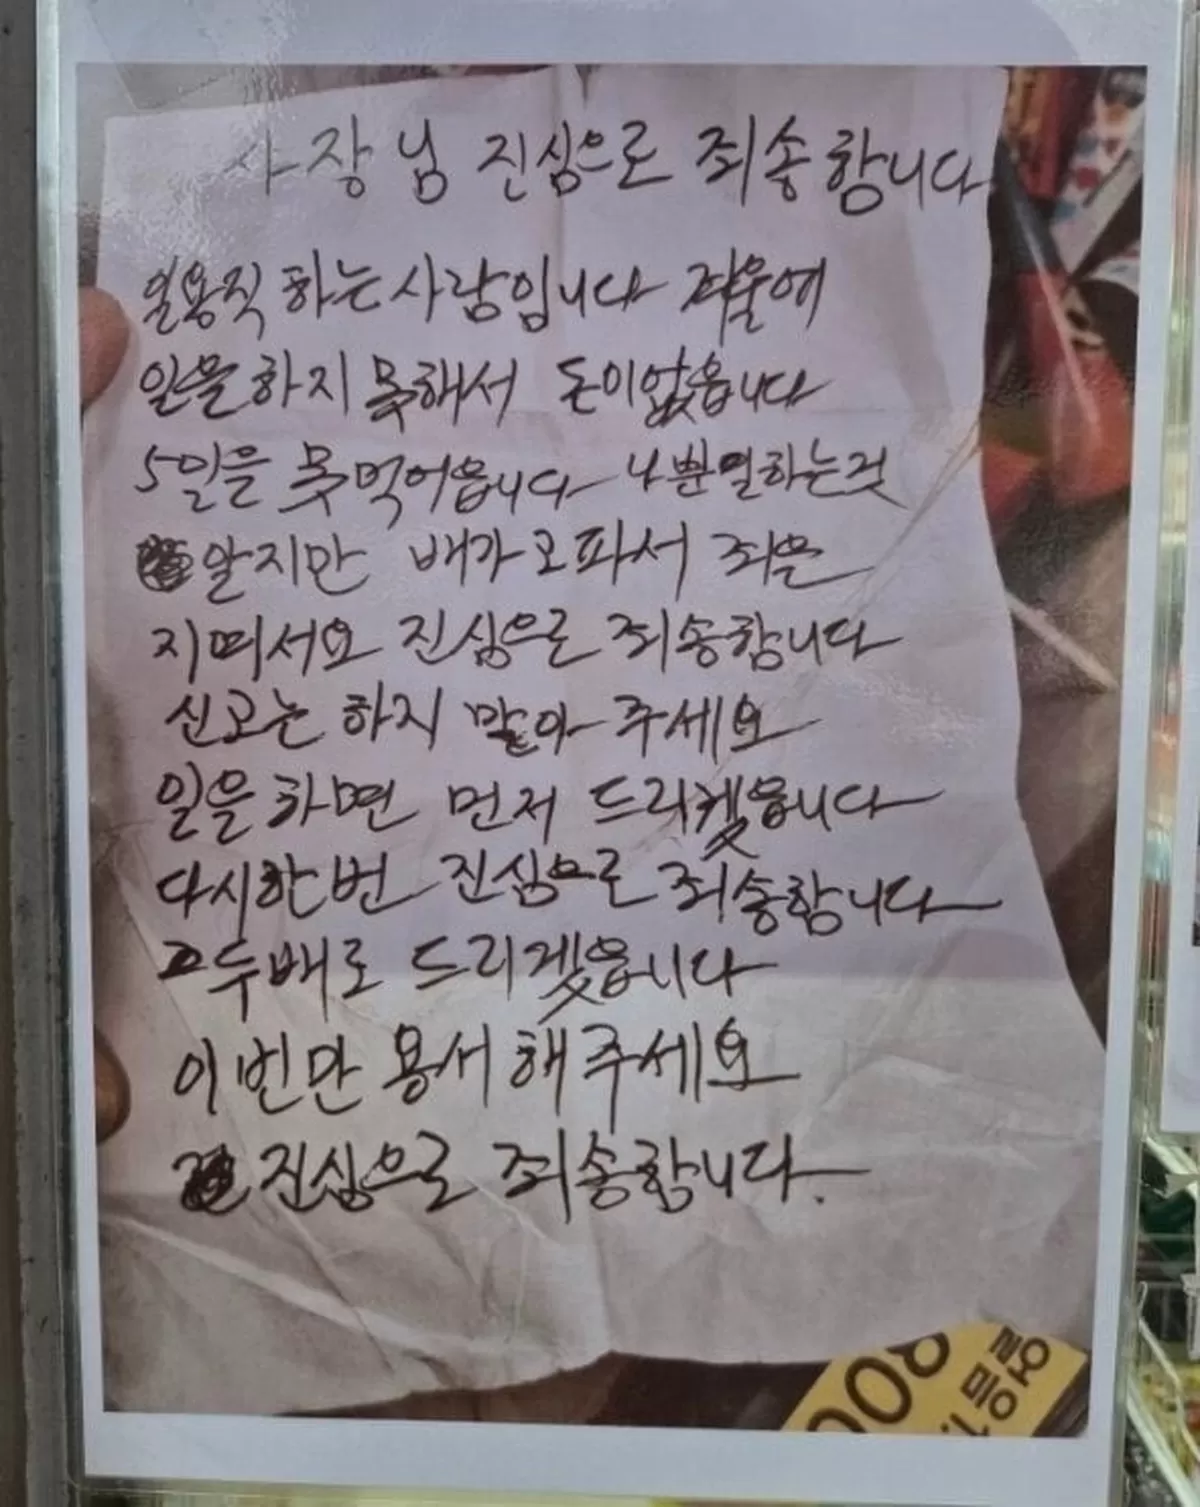 사장님 진심으로 죄송합니다
일용직 하는사람입니다 겨울에
일을하지 못해서 돈이없읍니다
5일을 못먹어읍니다 나쁜일하는것
알지만 배가고파서 죄은
지며서요 진심으로 죄송합니다
신고는 하지 말아 주세요
일을하면 먼저 드리겠읍니다
다시한번 진심으로 죄송합니다
두배로 드리겟읍니다
이번만 용서해주세요
진심으로 죄송합니다.